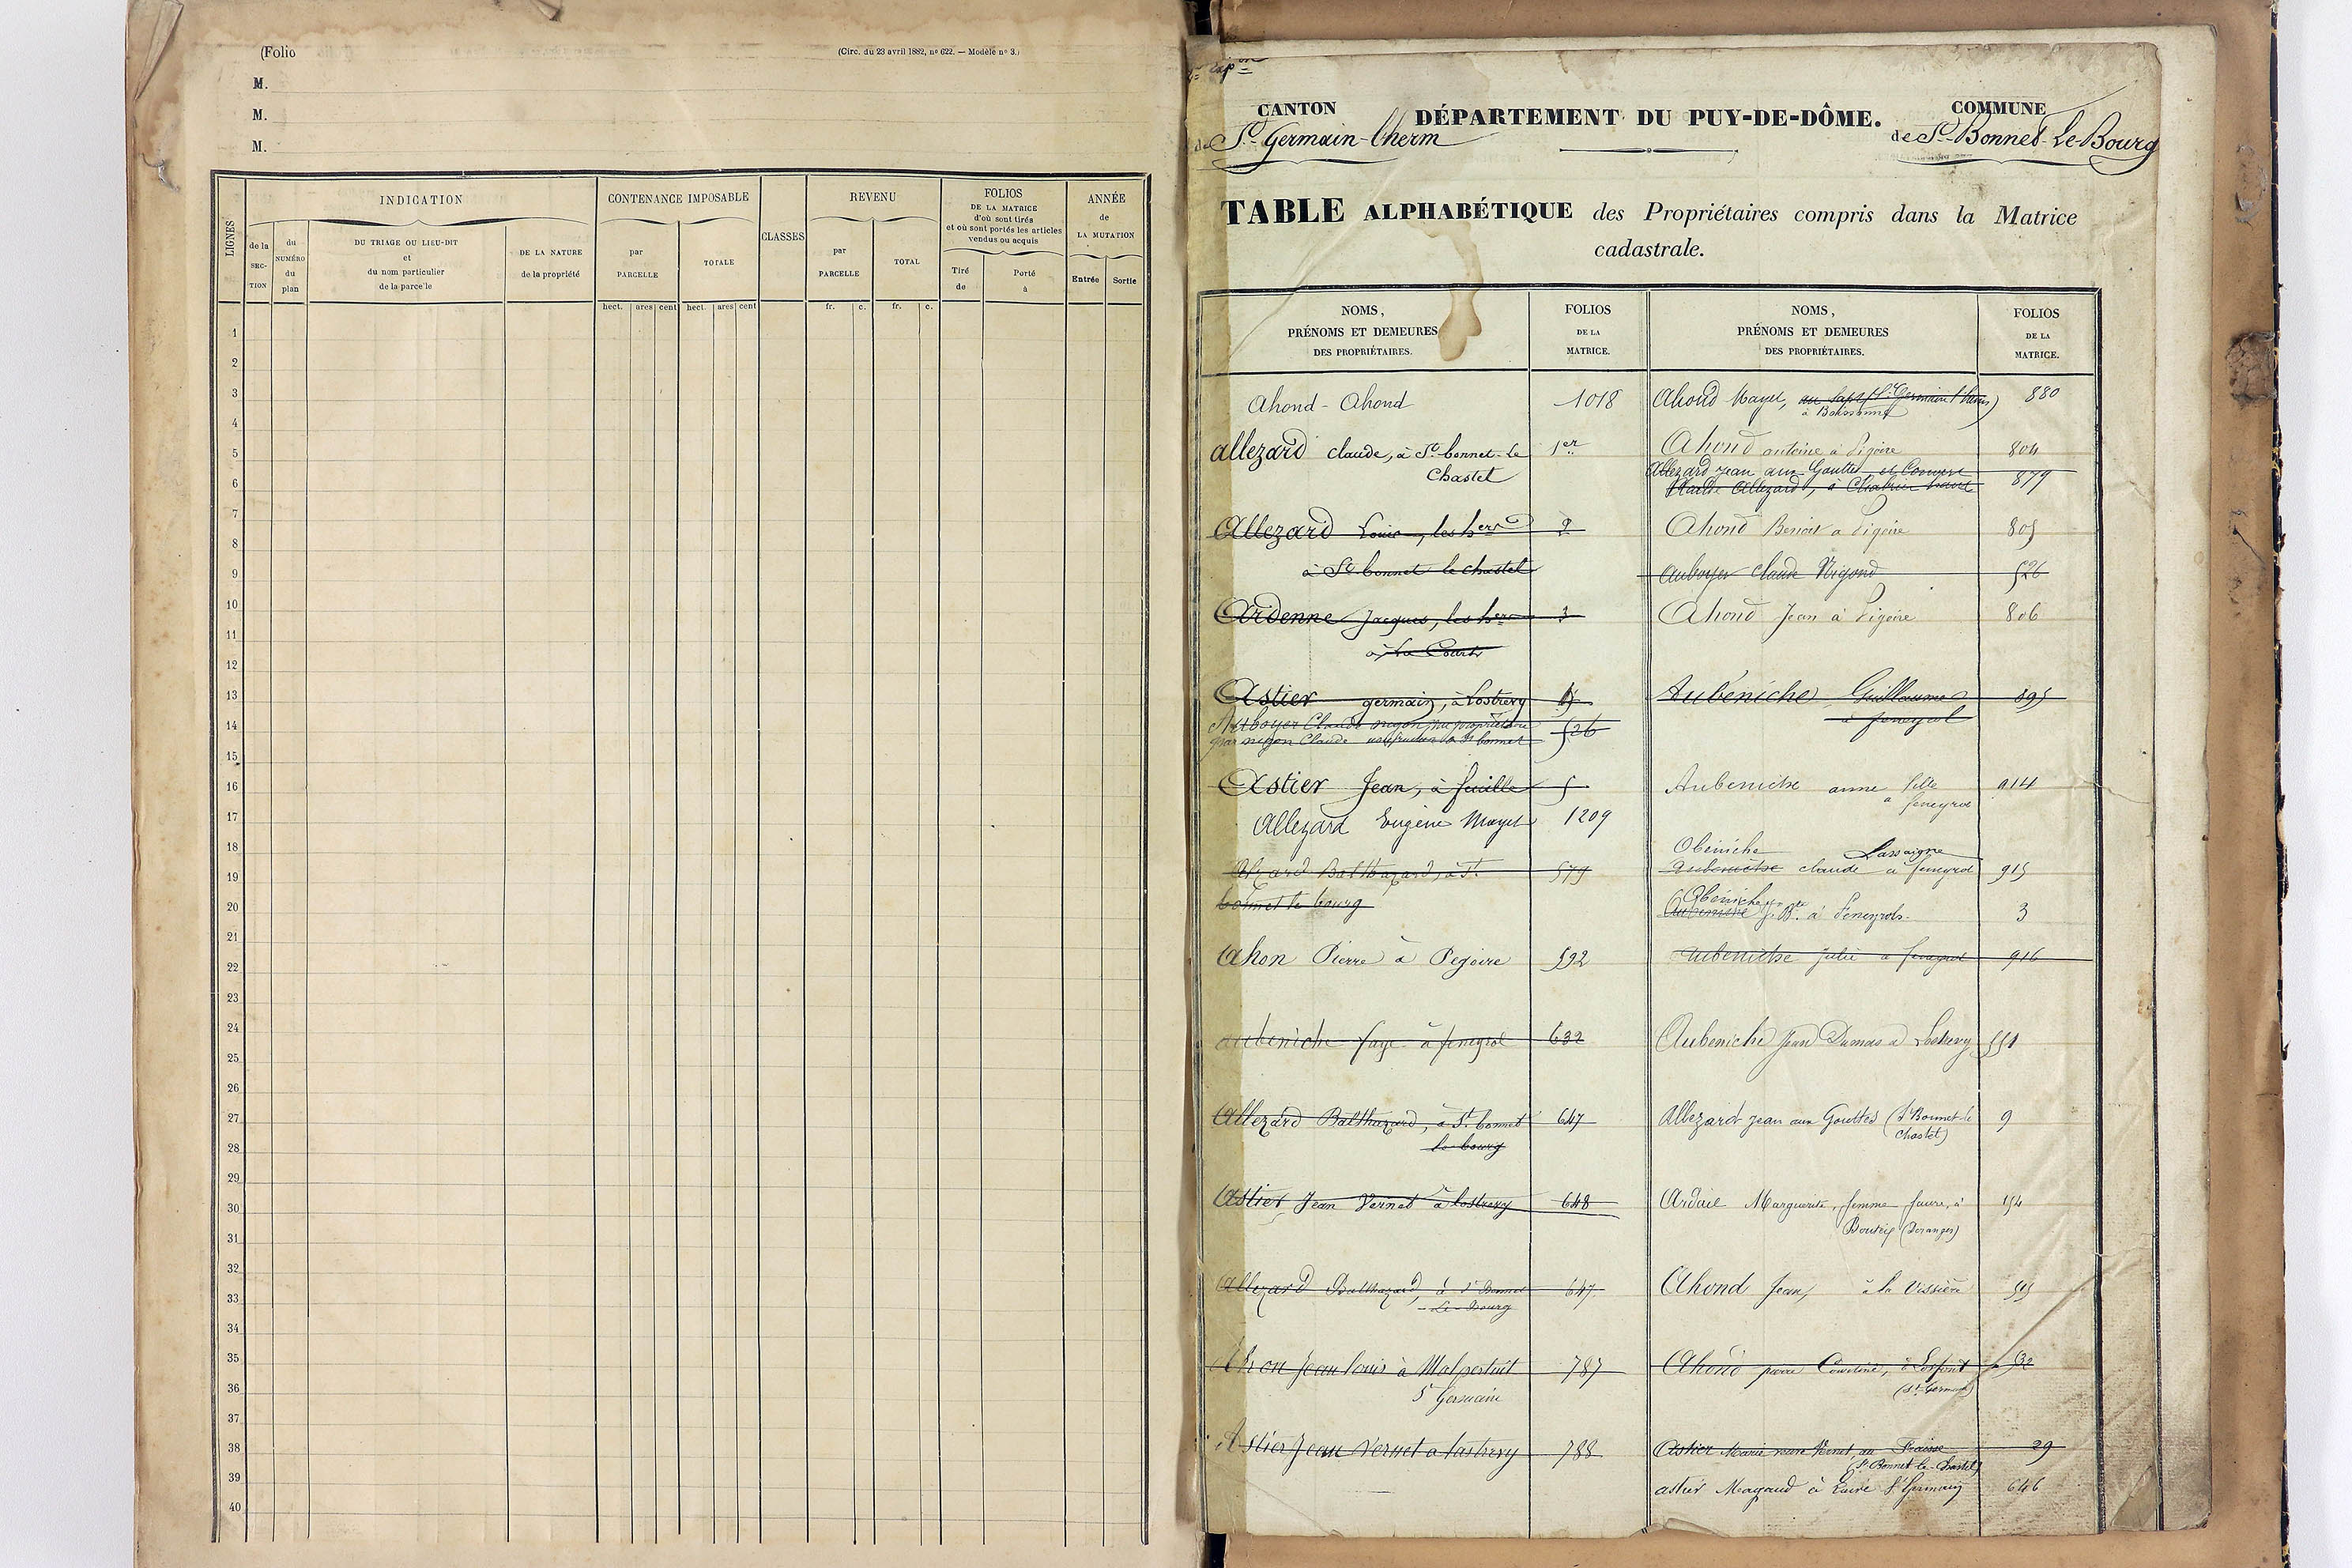 (Folio
(Circ. du 23 avril 1882, nº 622. — Modèle nº 3.)
M.
M.
M.
LIGNES
INDICATION
de la
SEC-
TION
du
NUMÉRO
du
plan
DU TRIAGE OU LIEU-DIT
et
du nom particulier
de la parcelle
DE LA NATURE
de la propriété
CONTENANCE IMPOSABLE
par
PARCELLE
TOTALE
CLASSES
REVENU
par
PARCELLE
TOTAL
FOLIOS
DE LA MATRICE
d'où sont tirés
et où sont portés les articles
vendus ou acquis
Tiré
de
Porté
à
ANNÉE
de
LA MUTATION
Entrée
Sortie
hect. ares cent hect. ares cent fr. c. fr. c.
1
2
3
4
5
6
7
8
9
10
11
12
13
14
15
16
17
18
19
20
21
22
23
24
25
26
27
28
29
30
31
32
33
34
35
36
37
38
39
40
CANTON
de St Germain-l'herm
DÉPARTEMENT DU PUY-DE-DÔME.
COMMUNE
de St-Bonnet-Le-Bourg
TABLE ALPHABÉTIQUE des Propriétaires compris dans la Matrice
cadastrale.
NOMS,
PRÉNOMS ET DEMEURES
DES PROPRIÉTAIRES.
FOLIOS
DE LA
MATRICE.
Ahond - Ahond 1018
allezard claude, à St bonnet-le 1er
Chastel
Allezard Louis, les hers 2
à St bonnet le chastel
Ardenne Jacques, les hers 3
Astier germain, à Lostrevy
Auboyer Claude 526
Astier Jean, à feuille 5
Allezard Eugène Mayet 1209
Balthazard, à St 579
bonnet le bourg
Ahon Pierre à Pegoire 592
aubeniche faye à feneyrol 632
Allezard Balthazard, à St bonnet 647
le bourg
Astier Jean Vernet à lostrevy 648
Allezard Balthazard, à St Bonnet 647
Le Bourg
Ahon Jean louis à Malpertuit 787
St Germain
Astier Jean Vernet a lastrevy 788
NOMS,
PRÉNOMS ET DEMEURES
DES PROPRIÉTAIRES.
FOLIOS
DE LA
MATRICE.
Ahond Mayet, 880
Ahond antoine à Pigoire 804
Allezard Jean aux Gouttes 879
Allezard, à
Ahond Benoit a Pigoire 805
Auboyer Claude Nigond 526
Ahond Jean à Pigoire 806
Aubéniche Guillaume 895
à feneyrol
Aubeniche anne fille 914
a feneyrol
Obeniche Lassaigne
Aubeniche claude à feneyrol 915
Obeniche
Aubeniche J. Bte à Feneyrols. 3
Aubeniche Julie à feneyrol 916
Aubeniche Jean Dumas à Lostrevy 551
Allezard Jean aux Gouttes (St Bonnet-le 9
Chastel)
Ardaie Marguerite, femme faure, à
(Doranges)
Ahond Jean, à la Vissière
Ahond pierre 532
(St Germain)
Astier Marie Vernet, au Fraisse 29
(St Bonnet-le-Chastel)
astier Magaud à St Germain 646